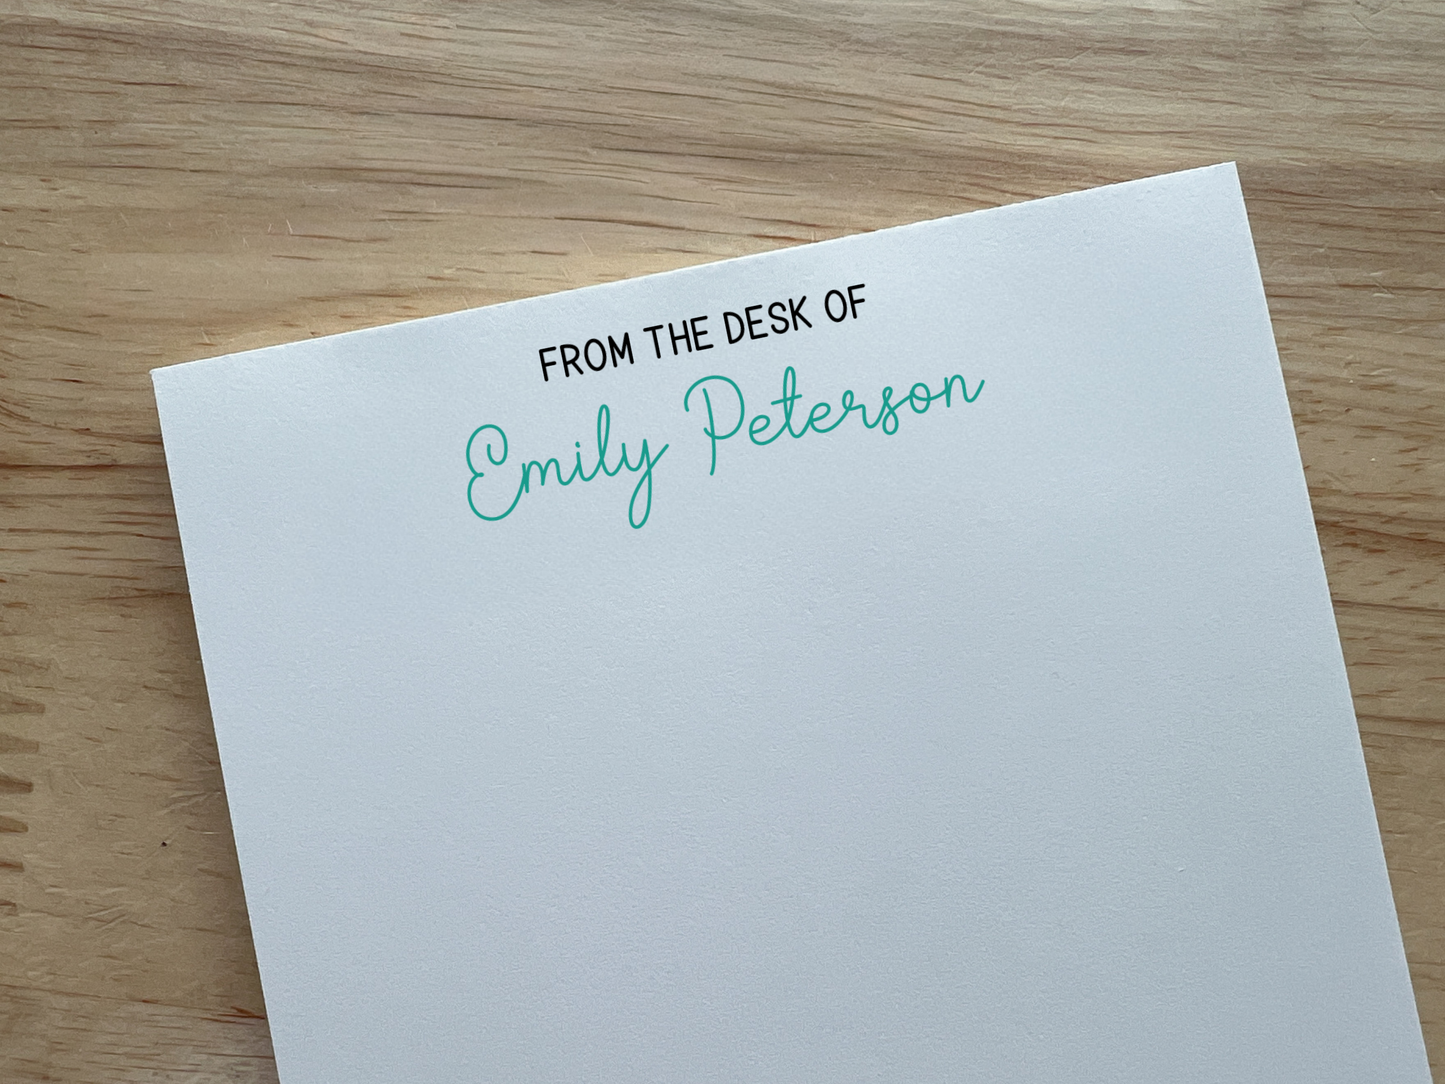 FROM THE DESK OF
Emily Peterson